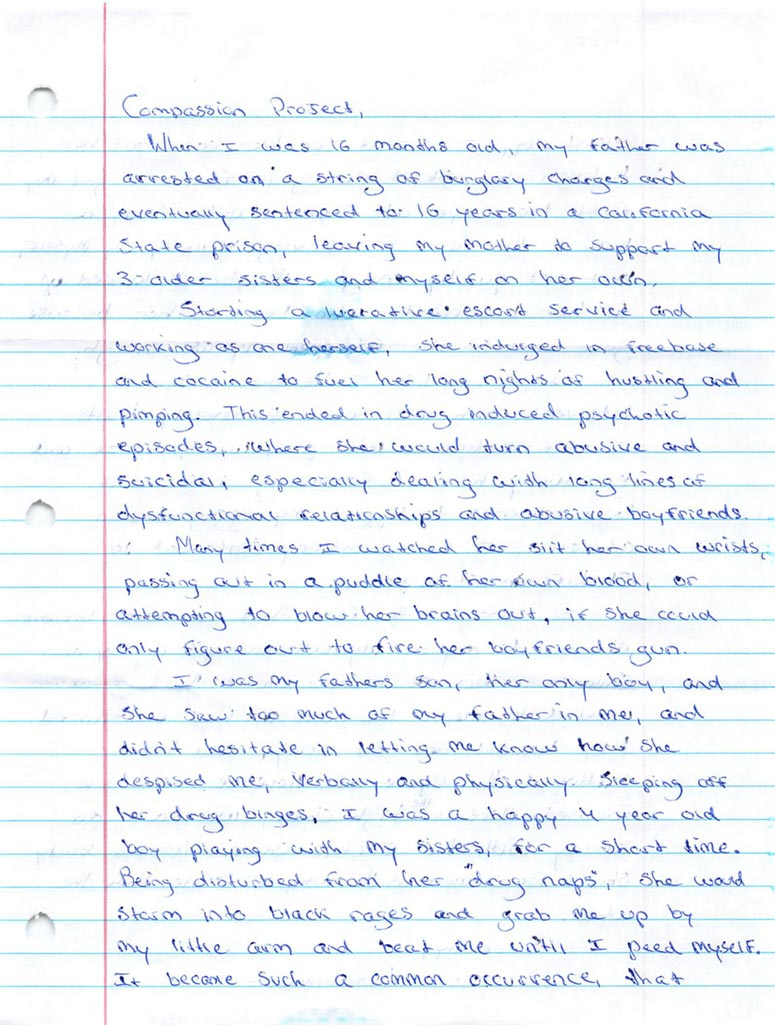 Compassion Project,
When I was 16 months old, my father was
arrested on a string of burglary charges and
eventually sentenced to 16 years in a California
State prison, leaving my mother to support my
3 older sisters and myself on her own.
Starting a lucrative escort service and
working as one herself, she indulged in freebase
and cocaine to fuel her long nights of hustling and
pimping. This ended in drug induced psychotic
episodes, where she would turn abusive and
suicidal, especially dealing with long lines of
dysfunctional relationships and abusive boyfriends.
Many times I watched her slit her own wrists,
passing out in a puddle of her own blood, or
attempting to blow her brains out, if she could
only figure out to fire her boyfriends gun.
I was my fathers son, her only boy, and
she saw too much of my father in me, and
didn't hesitate in letting me know how she
despised me, verbally and physically. Sleeping off
her drug binges, I was a happy 4 year old
boy playing with my sisters, for a short time.
Being disturbed from her "drug naps", she would
storm into black rages and grab me up by
my little arm and beat me until I peed myself.
It became such a common occurrence, that